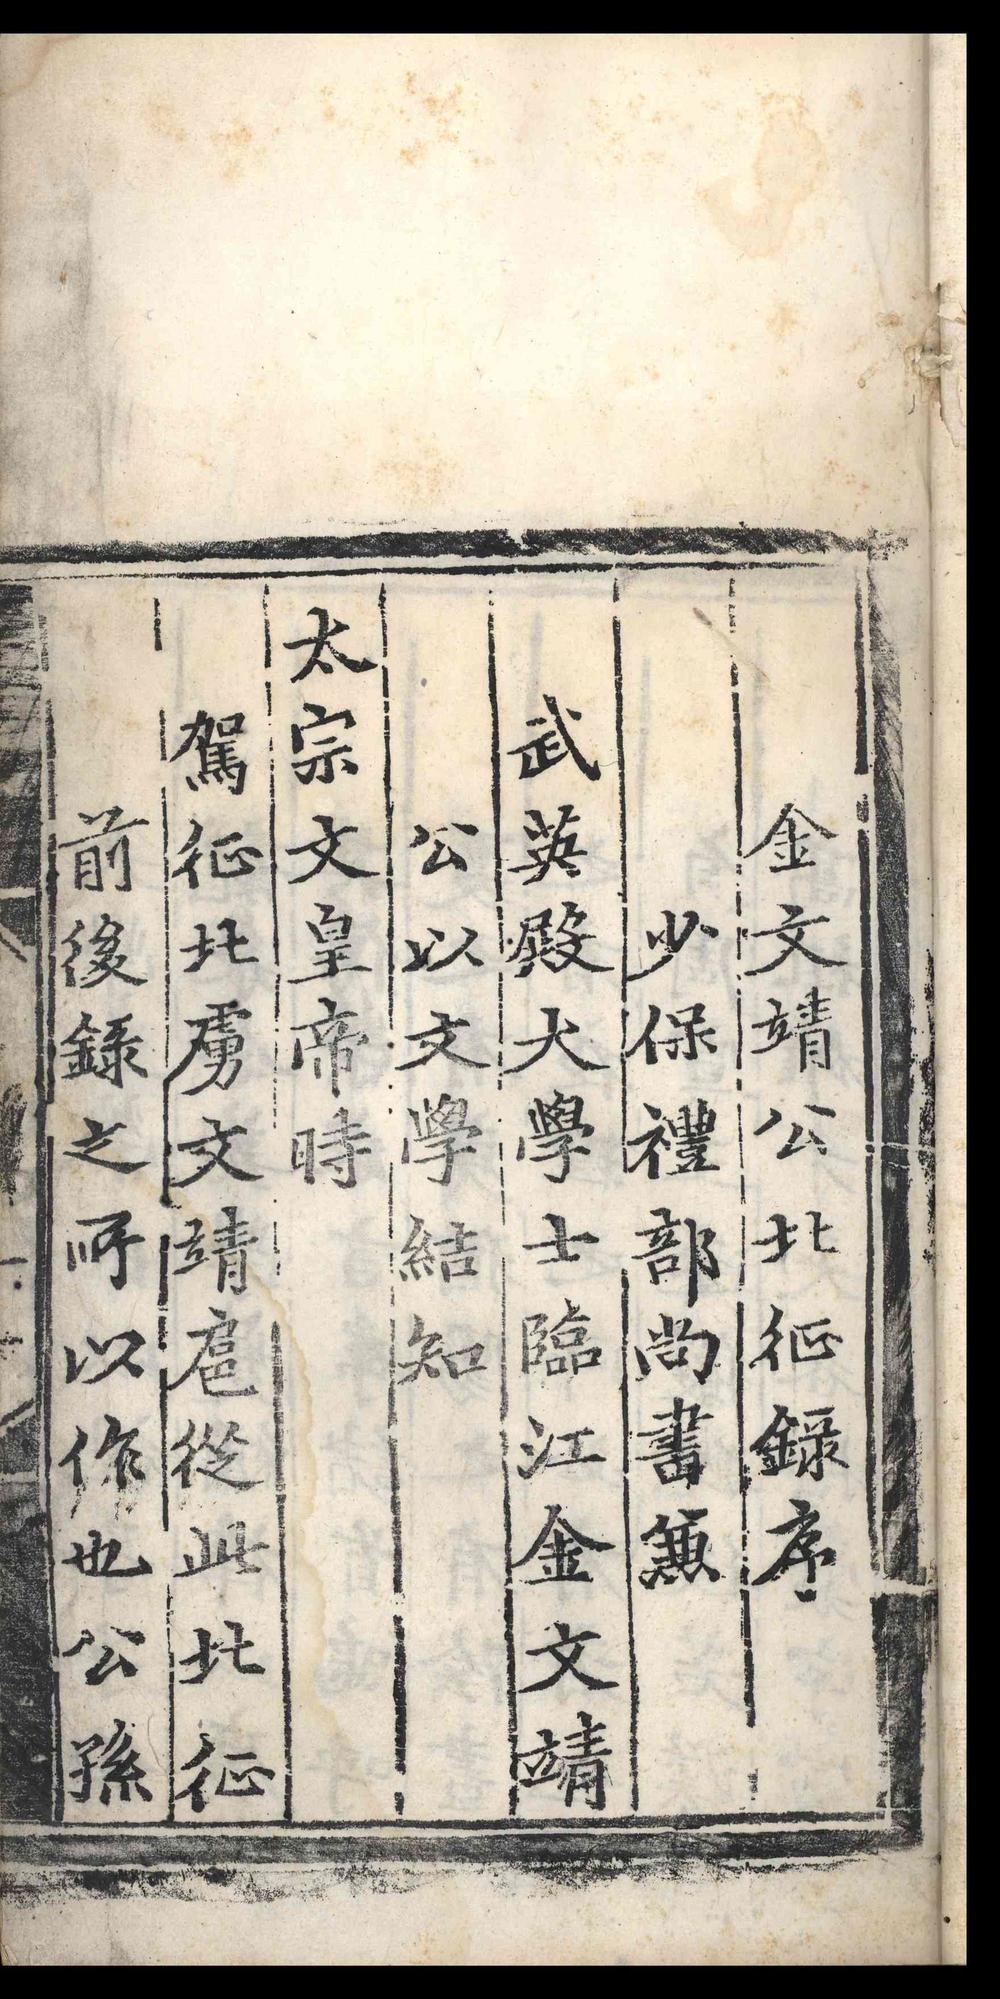 金文靖公北征錄序
少保禮部尚書蒹
武英殿大學士臨江金文靖
公以文學結知
太宗文皇帝時
駕征北虜文靖扈從此北征
前後錄之所以作也公孫